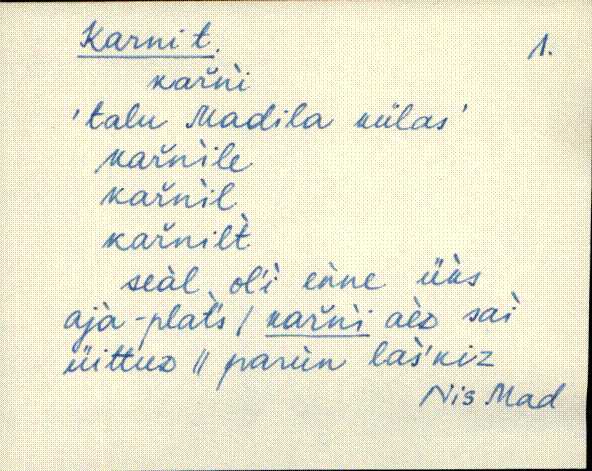 Karni t.
1.
kar̆nì
'talu Madila külas'
kar̆nìle
kar̆nìl
kar̆nilt̀
seàl olì eǹne üks
ajà-plat̀s / kar̆nì aèɒ saì
üittuɒ // parùn las̀'kiz
Nis Mad